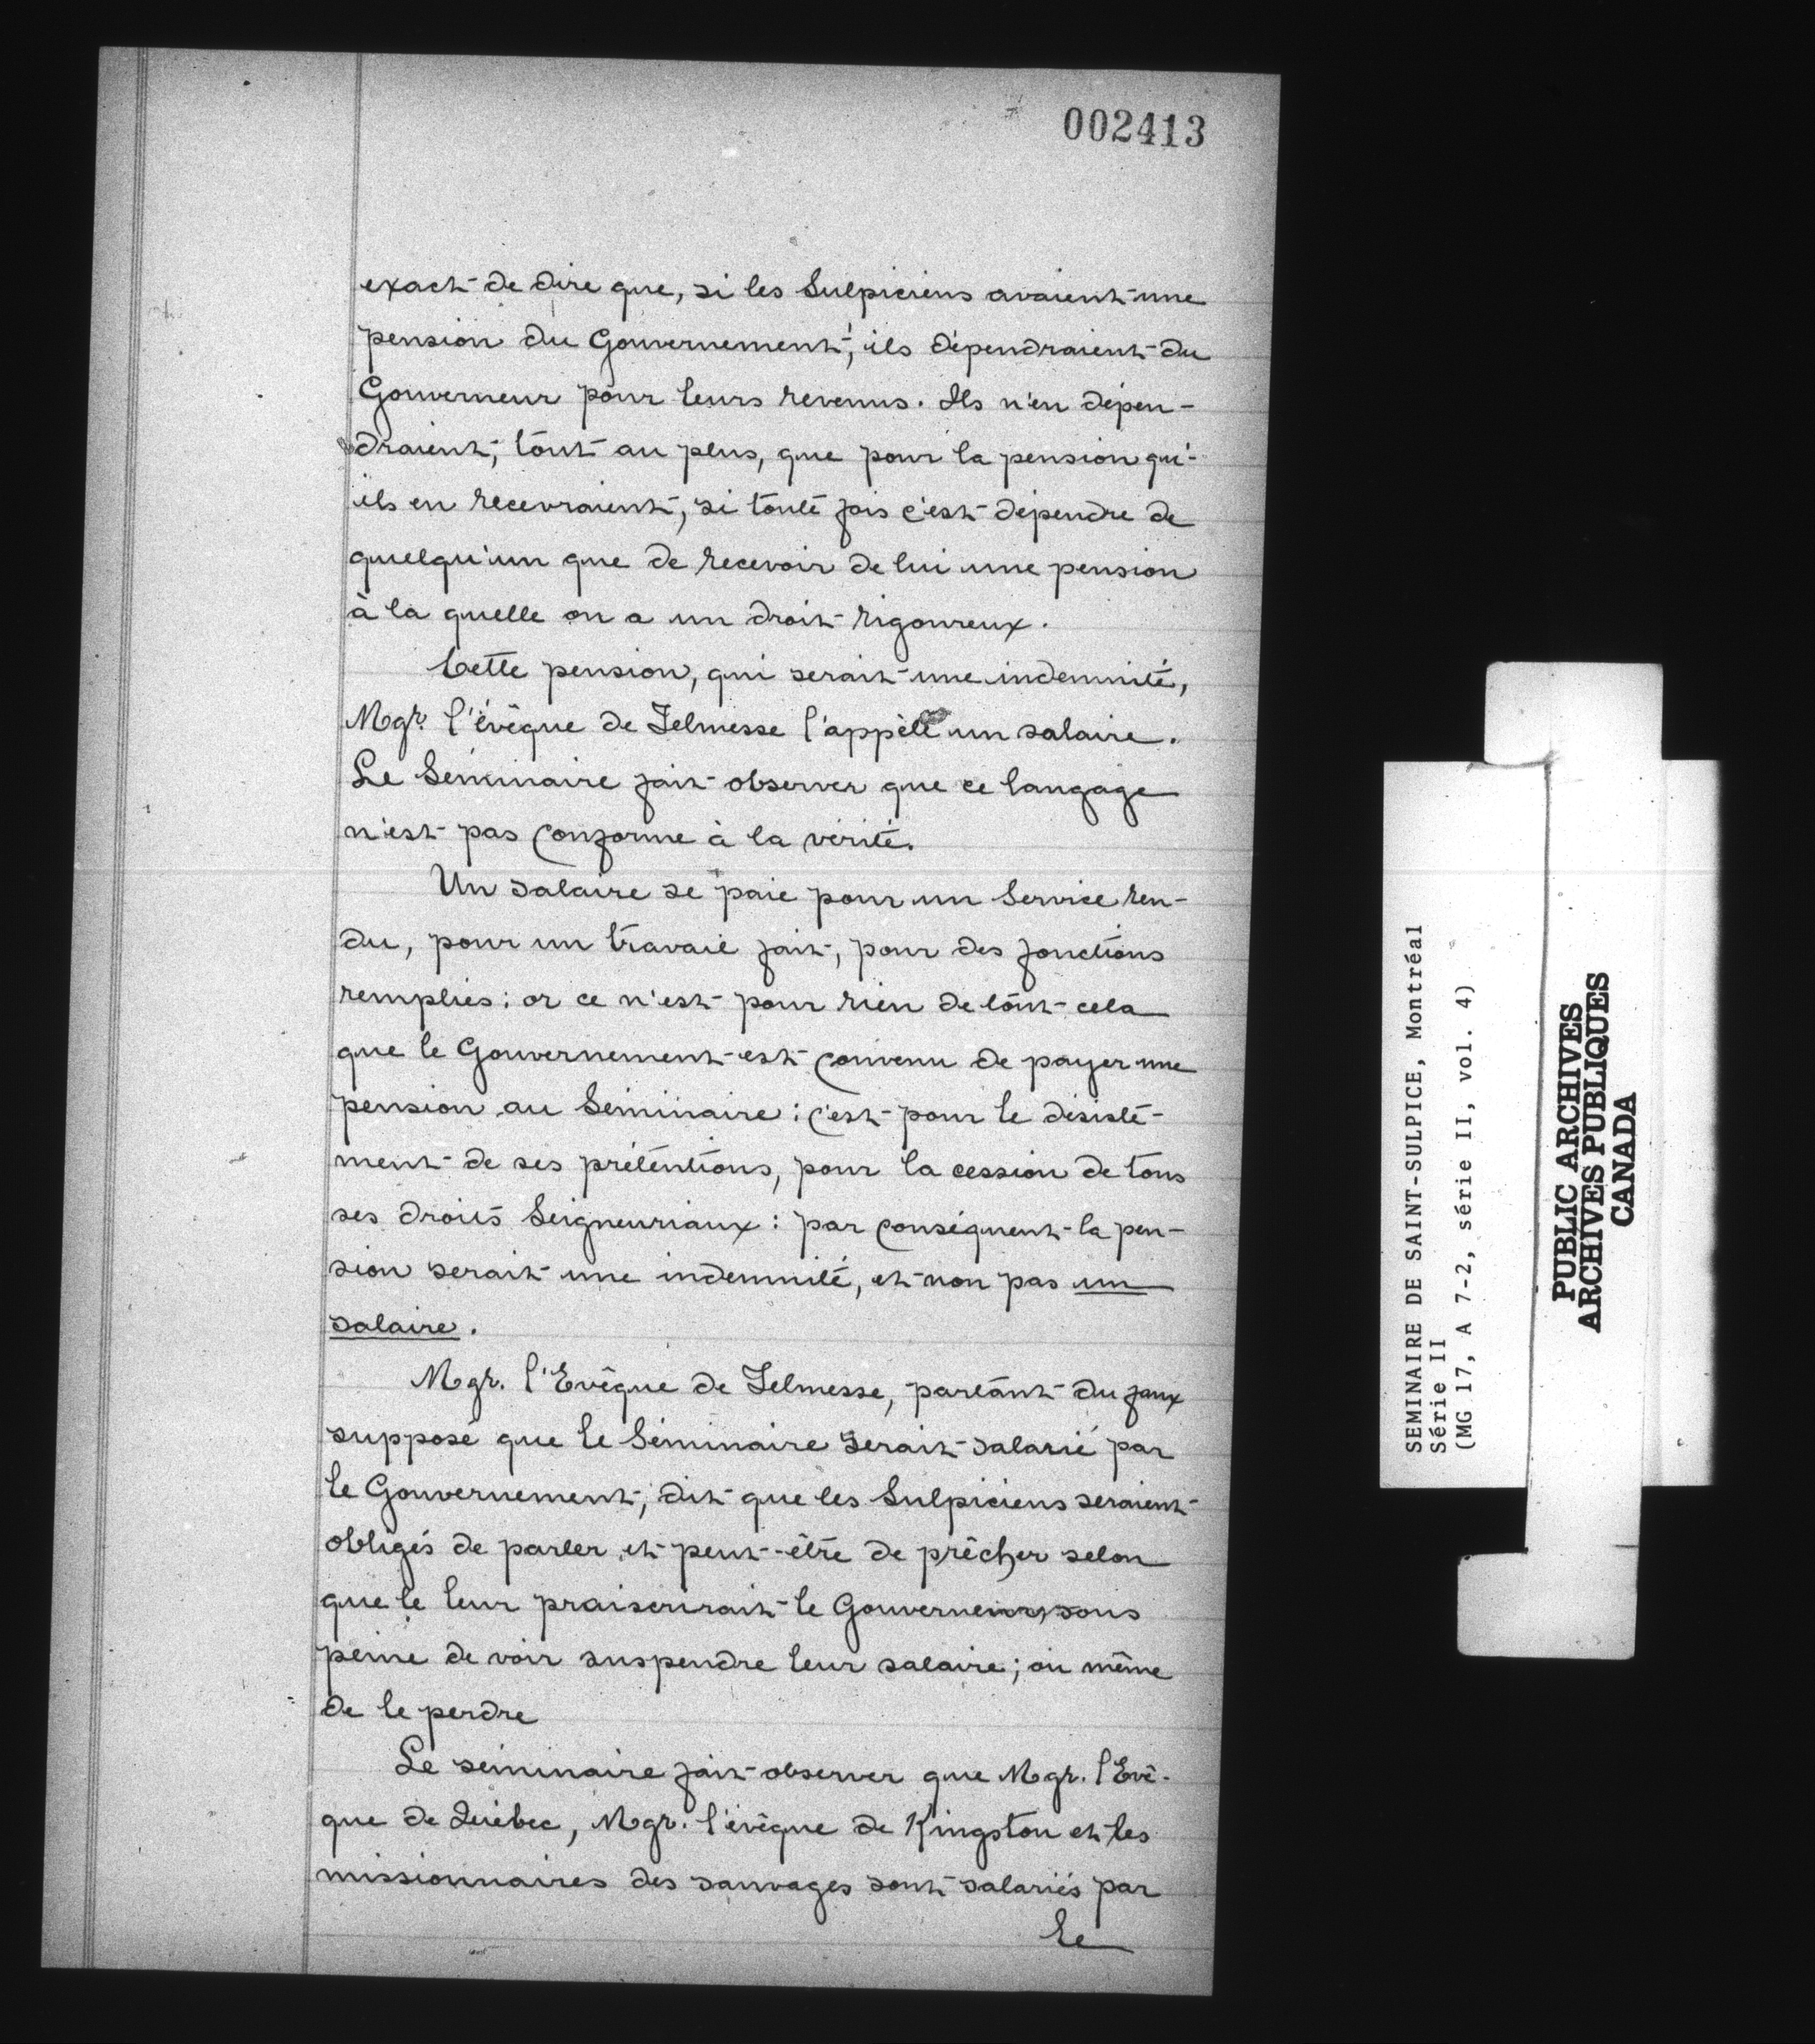 002413
exact de dire que, si les Sulpiciens avaient une
pension du Gouvernement, ils dépendraient du
Gouverneur pour leurs revenus. Ils n'en dépen-
draient, tout au plus, que pour la pension qu'-
ils en recevraient, si toute fois c'est dépendre de
quelqu'un que de recevoir de lui une pension
à la quelle on a un droit rigoureux.
Cette pension, qui serait une indemnité,
Mgr. l'évêque de Telmesse l'appèle un salaire.
Le Séminaire fait observer que ce langage
n'est pas conforme à la vérité.
Un salaire se paie pour un Service ren-
du, pour un travail fait, pour des fonctions
remplies : or ce n'est pour rien de tout cela
que le Gouvernement est convenu de payer une
pension au Séminaire : c'est pour le désiste-
ment de ses prétentions, pour la cession de tous
ses droits Seigneuriaux : par conséquent la pen-
sion serait une indemnité, et non pas un
salaire.
Mgr. l'Evêque de Telmesse, partant du faux
supposé que le Séminaire serait salarié par
le Gouvernement, dit que les Sulpiciens seraient
obligés de parler et peut-être de prêcher selon
que le leur praiscrirait le Gouverneur, sous
peine de voir suspendre leur salaire; ou même
de le perdre
Le séminaire fait observer que Mgr. l'Evê-
que de Québec, Mgr. l'évêque de Kingston et les
missionnaires des sauvages sont salariés par
le
SEMINAIRE DE SAINT-SULPICE, Montréal
Série II
(MG 17, A 7-2, série II, vol. 4)
PUBLIC ARCHIVES
ARCHIVES PUBLIQUES
CANADA